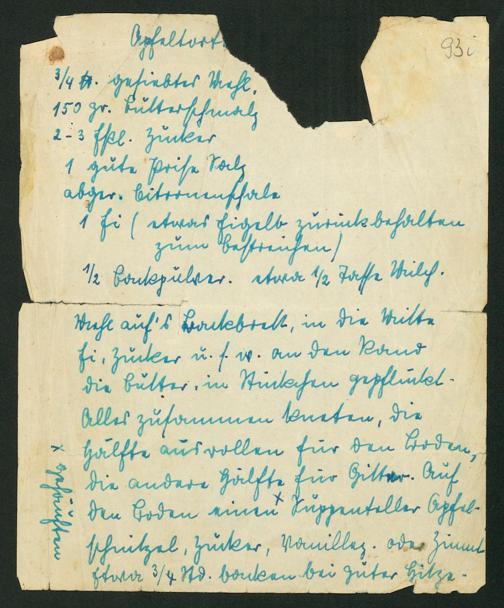 Apfeltort
93i
3/4 ℔. gesiebtes Mehl.
150 gr. Butterschmalz
2-3 Eßl. Zucker
1 gute Prise Salz
abger. Citronenschale
1 Ei (etwas Eigelb zurückbehalten
zum bestreichen)
1/2 Backpulver. etwa 1/2 Tasse Milch.
Mehl auf's Backbrett, in die Mitte
Ei, Zucker u.s.w. an den Rand
die Butter, in Stückchen gepflückt.
Alles zusammen kneten, die
Hälfte ausrollen für den Boden,
die andere Hälfte für Gitter. Auf
den Boden einen x Suppenteller Apfel-
schnitzel, Zucker, Vanillez. oder Zimmt
Etwa 3/4 Std. backen bei guter Hitze.
x gehäuften